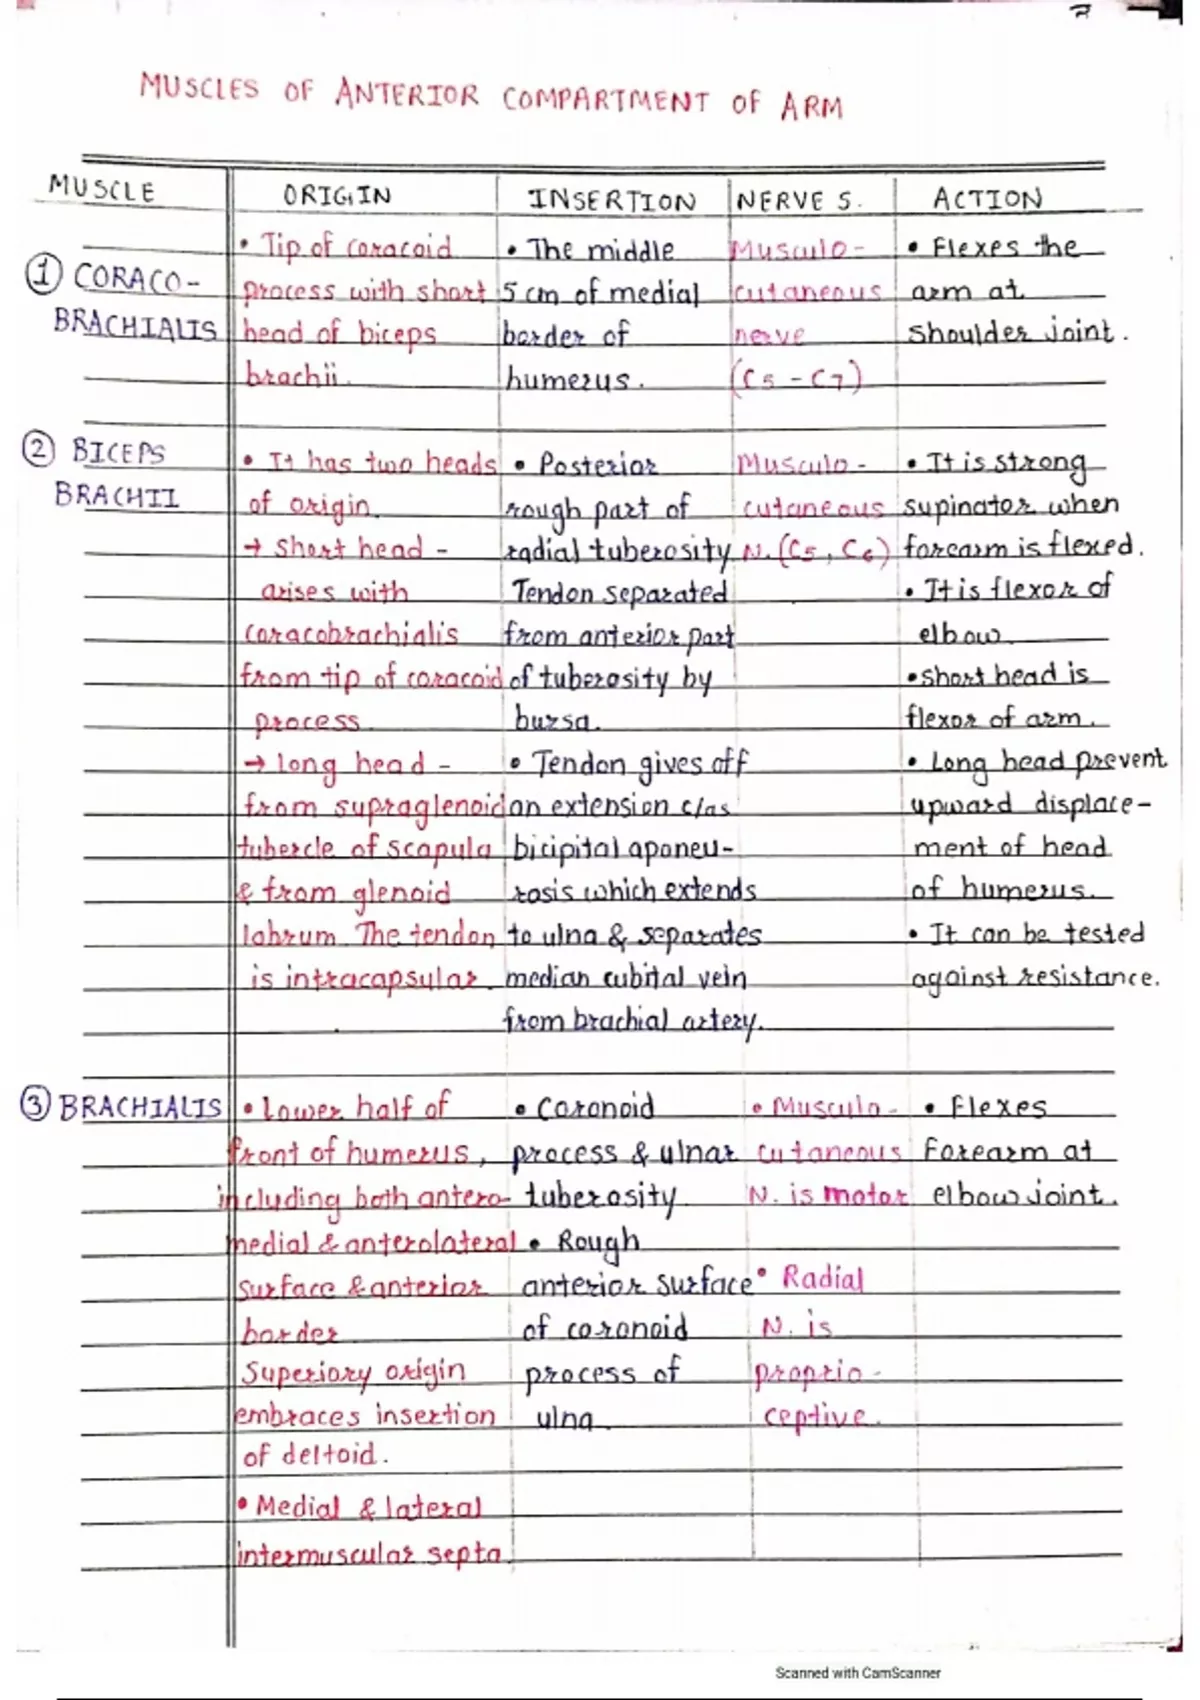 MUSCLES OF ANTERIOR COMPARTMENT OF ARM
MUSCLE
ORIGIN
INSERTION
NERVE S.
ACTION
① CORACO-
BRACHIALIS
• Tip of coracoid
process with short
head of biceps
brachii.
• The middle
5 cm of medial
border of
humerus.
Musculo-
cutaneous
nerve
(C5 - C7)
• Flexes the
arm at
shoulder joint.
② BICEPS
BRACHII
• It has two heads
of origin.
→ Short head -
arises with
coracobrachialis
from tip of coracoid
process.
→ long head -
from supraglenoid
tubercle of scapula
& from glenoid
labrum. The tendon
is intracapsular.
• Posterior
rough part of
radial tuberosity
Tendon separated
from anterior part
of tuberosity by
bursa.
• Tendon gives off
an extension c/as
bicipital aponeu-
rosis which extends
to ulna & separates
median cubital vein
from brachial artery.
Musculo-
cutaneous
N. (C5, C6)
• It is strong
supinator when
forearm is flexed.
• It is flexor of
elbow.
• Short head is
flexor of arm.
• Long head prevent
upward displace-
ment of head
of humerus.
• It can be tested
against resistance.
③ BRACHIALIS
• Lower half of
front of humerus,
including both antero-
medial & anterolateral
surface & anterior
border
Superiory origin
embraces insertion
of deltoid.
• Medial & lateral
intermuscular septa.
• Coronoid
process & ulnar
tuberosity
• Rough
anterior surface
of coronoid
process of
ulna.
• Musculo-
cutaneous
N. is motor
• Radial
N. is
proprio-
ceptive.
• Flexes
Forearm at
elbow joint.
Scanned with CamScanner